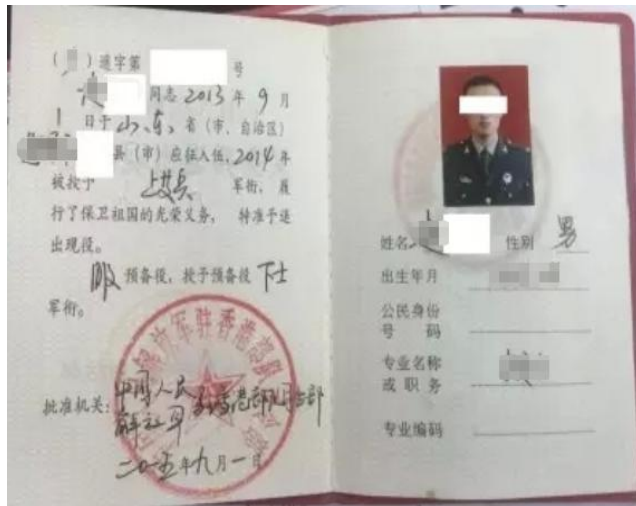 ( ) 退字第 号
同志 2013 年 9 月
1 日于 山东 省 (市、自治区)
县 (市) 应征入伍, 2014 年
被授予 上等兵 军衔, 履
行了保卫祖国的光荣义务, 特准予退
出现役。
服 预备役, 授予预备役 下士
军衔。
解放军驻香港部队
批准机关: 中国人民
解放军 驻香港部队司令部
二〇一五年九月一日
姓名 性别 男
出生年月
公民身份
号 码
专业名称
或 职 务
专业编码